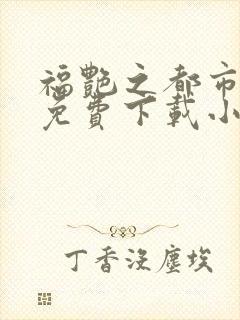 福艷之都市
免費下載小
丁香沒塵埃